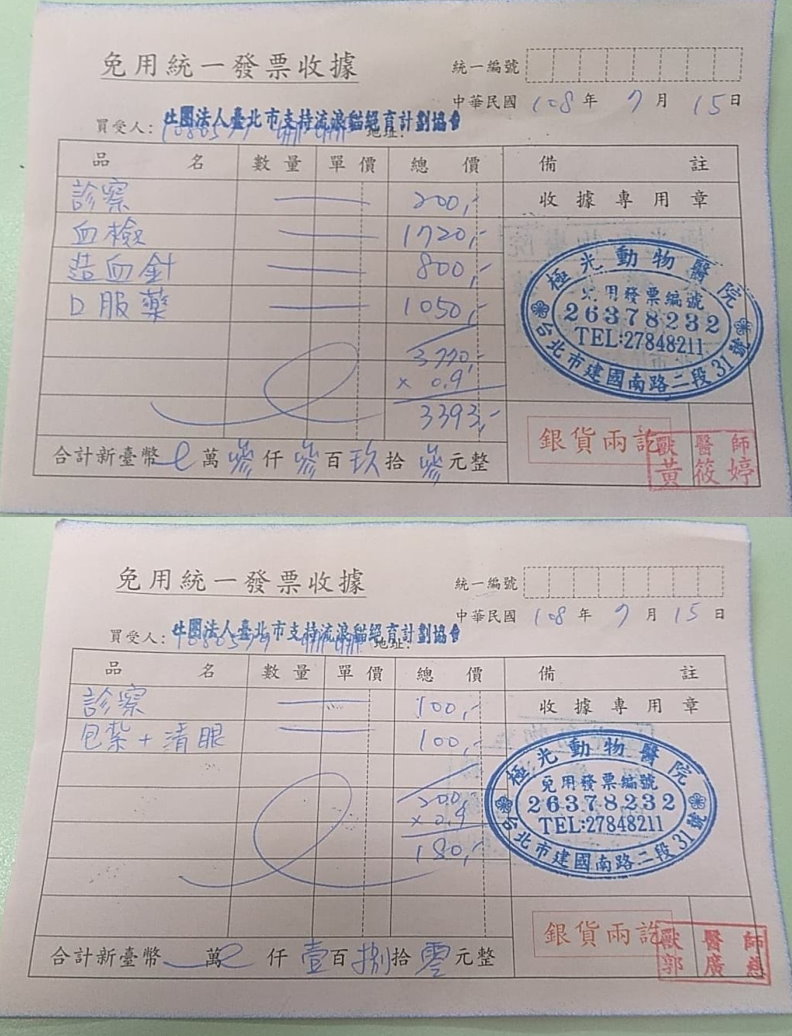 免用統一發票收據
統一編號
中華民國 108 年 7 月 15 日
買受人: 社團法人臺北市支持流浪貓絕育計劃協會 地址:
品名 數量 單價 總價 備註
診察 200,- 收據專用章
血檢 1720,-
造血針 800,-
口服藥 1050,-
3770,-
x 0.9
3393,-
極光動物醫院
免用發票編號
26378232
TEL:27848211
台北市建國南路二段31號
銀貨兩訖
獸醫師
黃筱婷
合計新臺幣 萬 參 仟 參 百 玖 拾 參 元整
免用統一發票收據
統一編號
中華民國 108 年 7 月 15 日
買受人: 社團法人臺北市支持流浪貓絕育計劃協會 地址:
品名 數量 單價 總價 備註
診察 100,- 收據專用章
包紮+清眼 100,-
200,-
x 0.9
180,-
極光動物醫院
免用發票編號
26378232
TEL:27848211
台北市建國南路二段31號
銀貨兩訖
獸醫師
郭廣慈
合計新臺幣 萬 仟 壹 百 捌 拾 零 元整